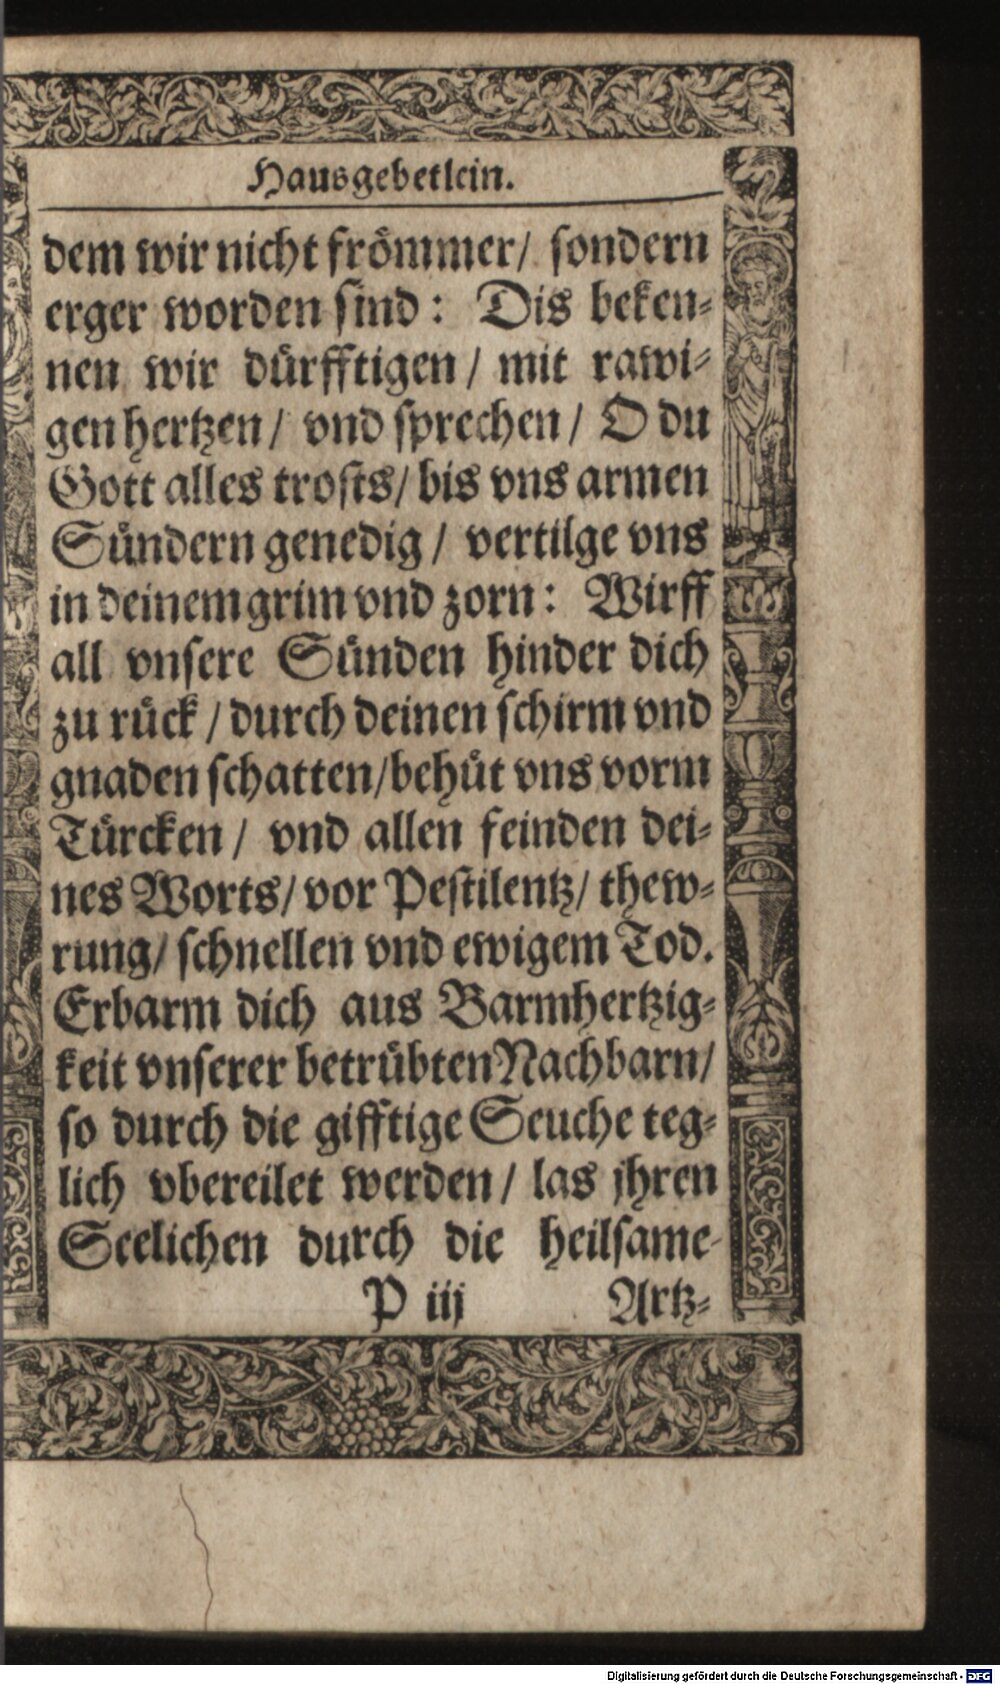 Hausgebetlein.
dem wir nicht frömmer/ sondern
erger worden sind: Dis beken-
nen wir dürfftigen/ mit rawi-
gen hertzen/ vnd sprechen/ O du
Gott alles trosts/ bis vns armen
Sündern genedig/ vertilge vns
in deinem grim vnd zorn: Wirff
all vnsere Sünden hinder dich
zu rück/ durch deinen schirm vnd
gnaden schatten/ behüt vns vorm
Türcken/ vnd allen feinden dei-
nes Worts/ vor Pestilentz/ thew-
rung/ schnellen vnd ewigem Tod.
Erbarm dich aus Barmhertzig-
keit vnserer betrübten Nachbarn/
so durch die gifftige Seuche teg-
lich vbereilet werden/ las jhren
Seelichen durch die heilsame
P iij Artz-
Digitalisierung gefördert durch die Deutsche Forschungsgemeinschaft - DFG